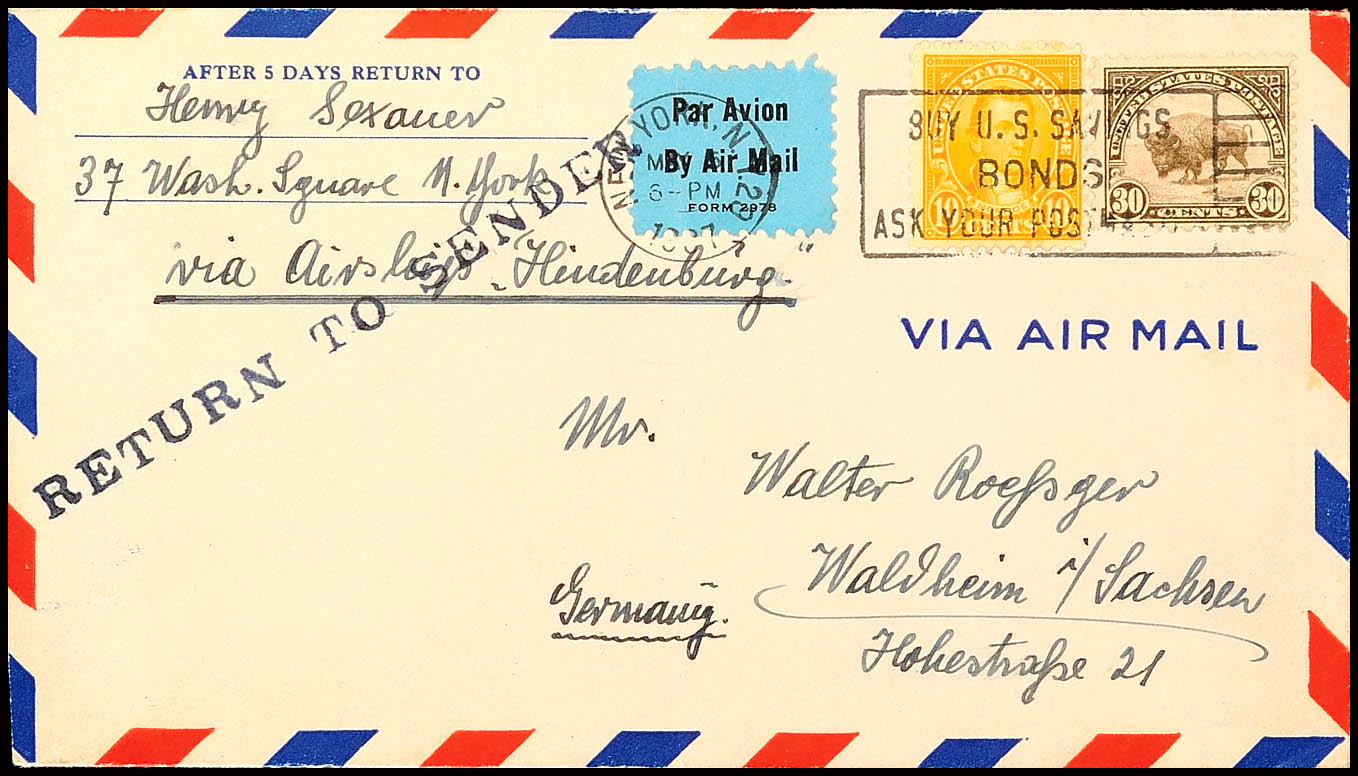 AFTER 5 DAYS RETURN TO
Henry Sexauer
37 Wash. Square N. York
via Airship „Hindenburg"
RETURN TO SENDER
Par Avion
By Air Mail
FORM 2978
NEW YORK, N.Y.
6-PM
1937
UNITED STATES POSTAGE
10 CENTS 10
UNITED STATES POSTAGE
30 CENTS 30
BUY U.S. SAVINGS
BONDS
ASK YOUR POST
VIA AIR MAIL
Mr.
Walter Roeßger
Waldheim i/Sachsen
Hohestraße 21
Germany.